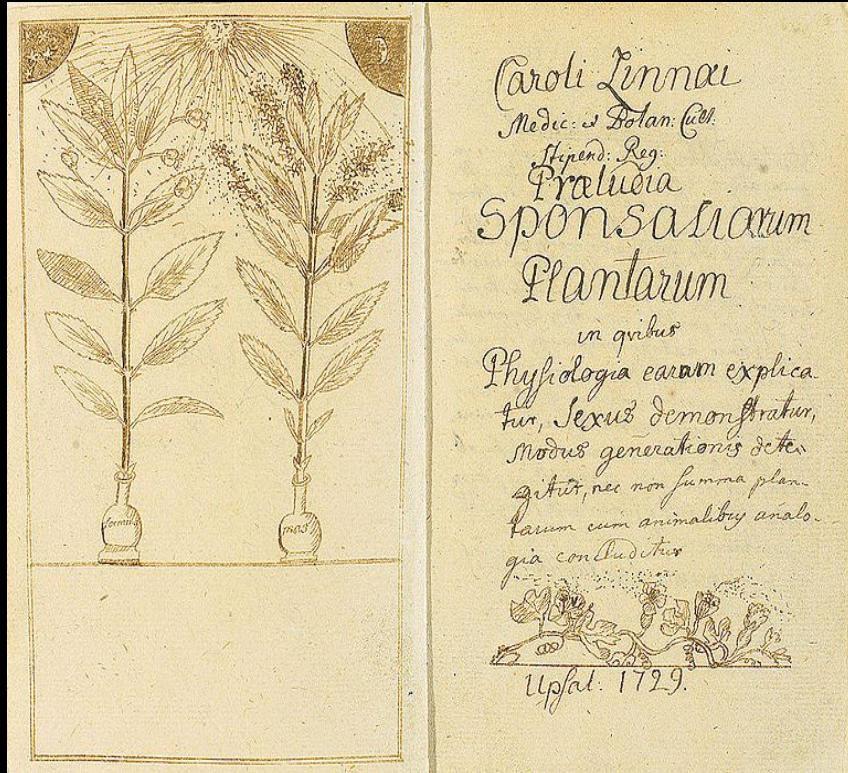 foemina
mas
Caroli Linnæi
Medic: & Botan: Cult:
Stipend: Reg:
Præludia
Sponsaliarum
Plantarum
in qvibus
Physiologia earum explica-
tur, Sexus demonstratur,
Modus generationis dete-
gitur, nec non summa plan-
tarum cum animalibus analo-
gia concluditur
Upsal: 1729.